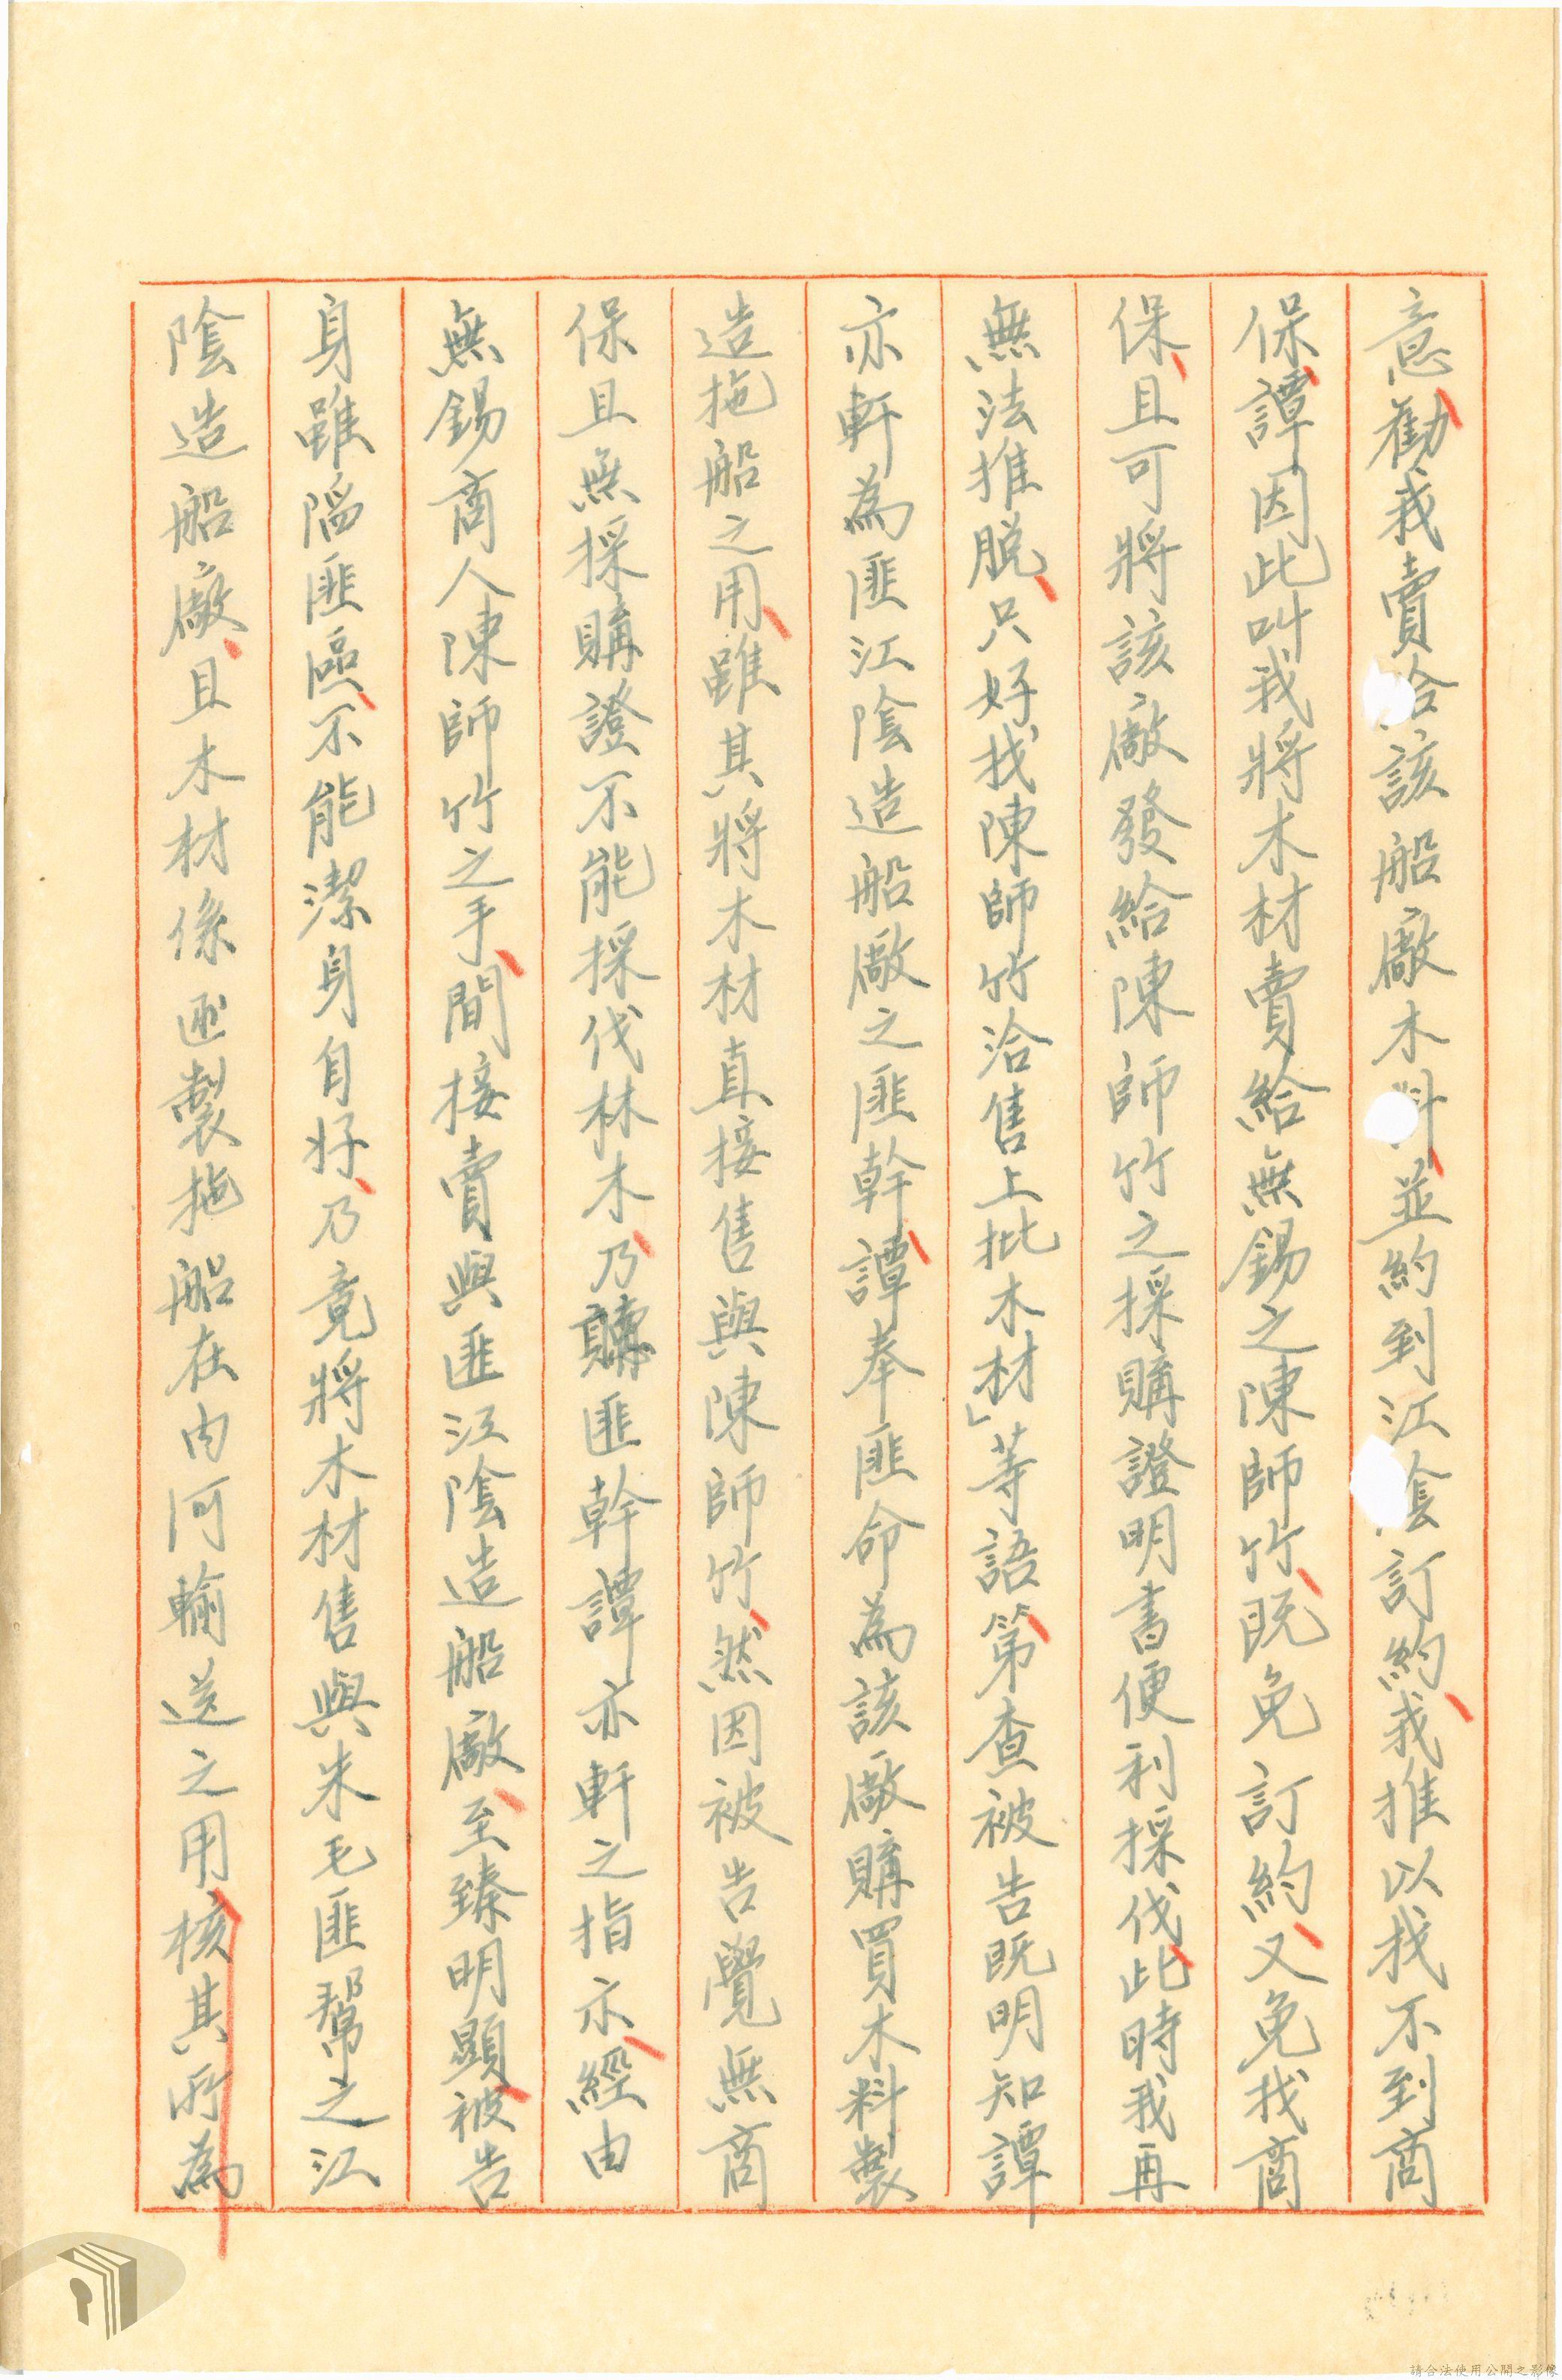 意勸我賣給該船廠木料並約到江陰訂約我推以找不到商
保譚因此叫我將木材賣給無錫之陳師竹既免訂約又免找商
保且可將該廠發給陳師竹之採購證明書便利採伐此時我再
無法推脫只好找陳師竹洽售上批木材」等語第查被告既明知譚
亦軒為匪江陰造船廠之匪幹譚奉匪命為該廠購買木料製
造拖船之用雖其將木材直接售與陳師竹然因被告覺無商
保且無採購證不能採伐林木乃賺匪幹譚亦軒之指示經由
無錫商人陳師竹之手間接賣與匪江陰造船廠至臻明顯被告
身雖陷匪區不能潔身自好乃竟將木材售與朱毛匪幫之江
陰造船廠且木材係製拖船在內河輸送之用核其所為
請合法使用公開之影像